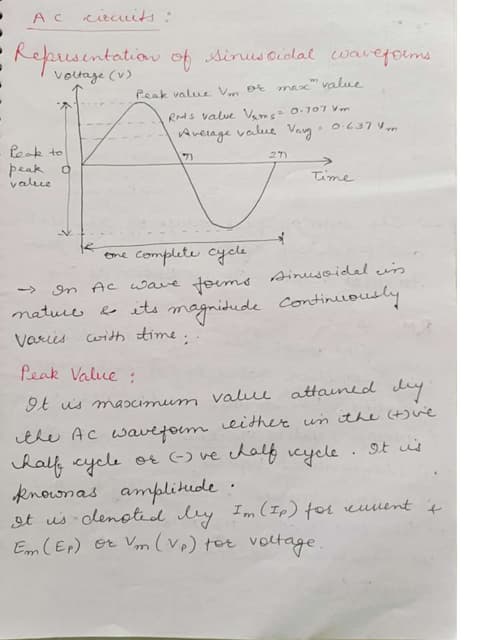 AC circuits :
Representation of sinusoidal waveforms
Voltage (v)
Peak value Vm or maxm value
RMS value Vrms = 0.707 Vm
Average value Vavg = 0.637 Vm
Peak to
peak
value
0
π
2π
Time
one complete cycle
→ In AC wave forms sinusoidal in
nature & its magnitude continuously
varies with time.
Peak Value :
It is maximum value attained by
the AC waveform either in the (+)ve
half cycle or (-)ve half cycle. It is
known as amplitude.
It is denoted by Im (Ip) for current &
Em (Ep) or Vm (Vp) for voltage.